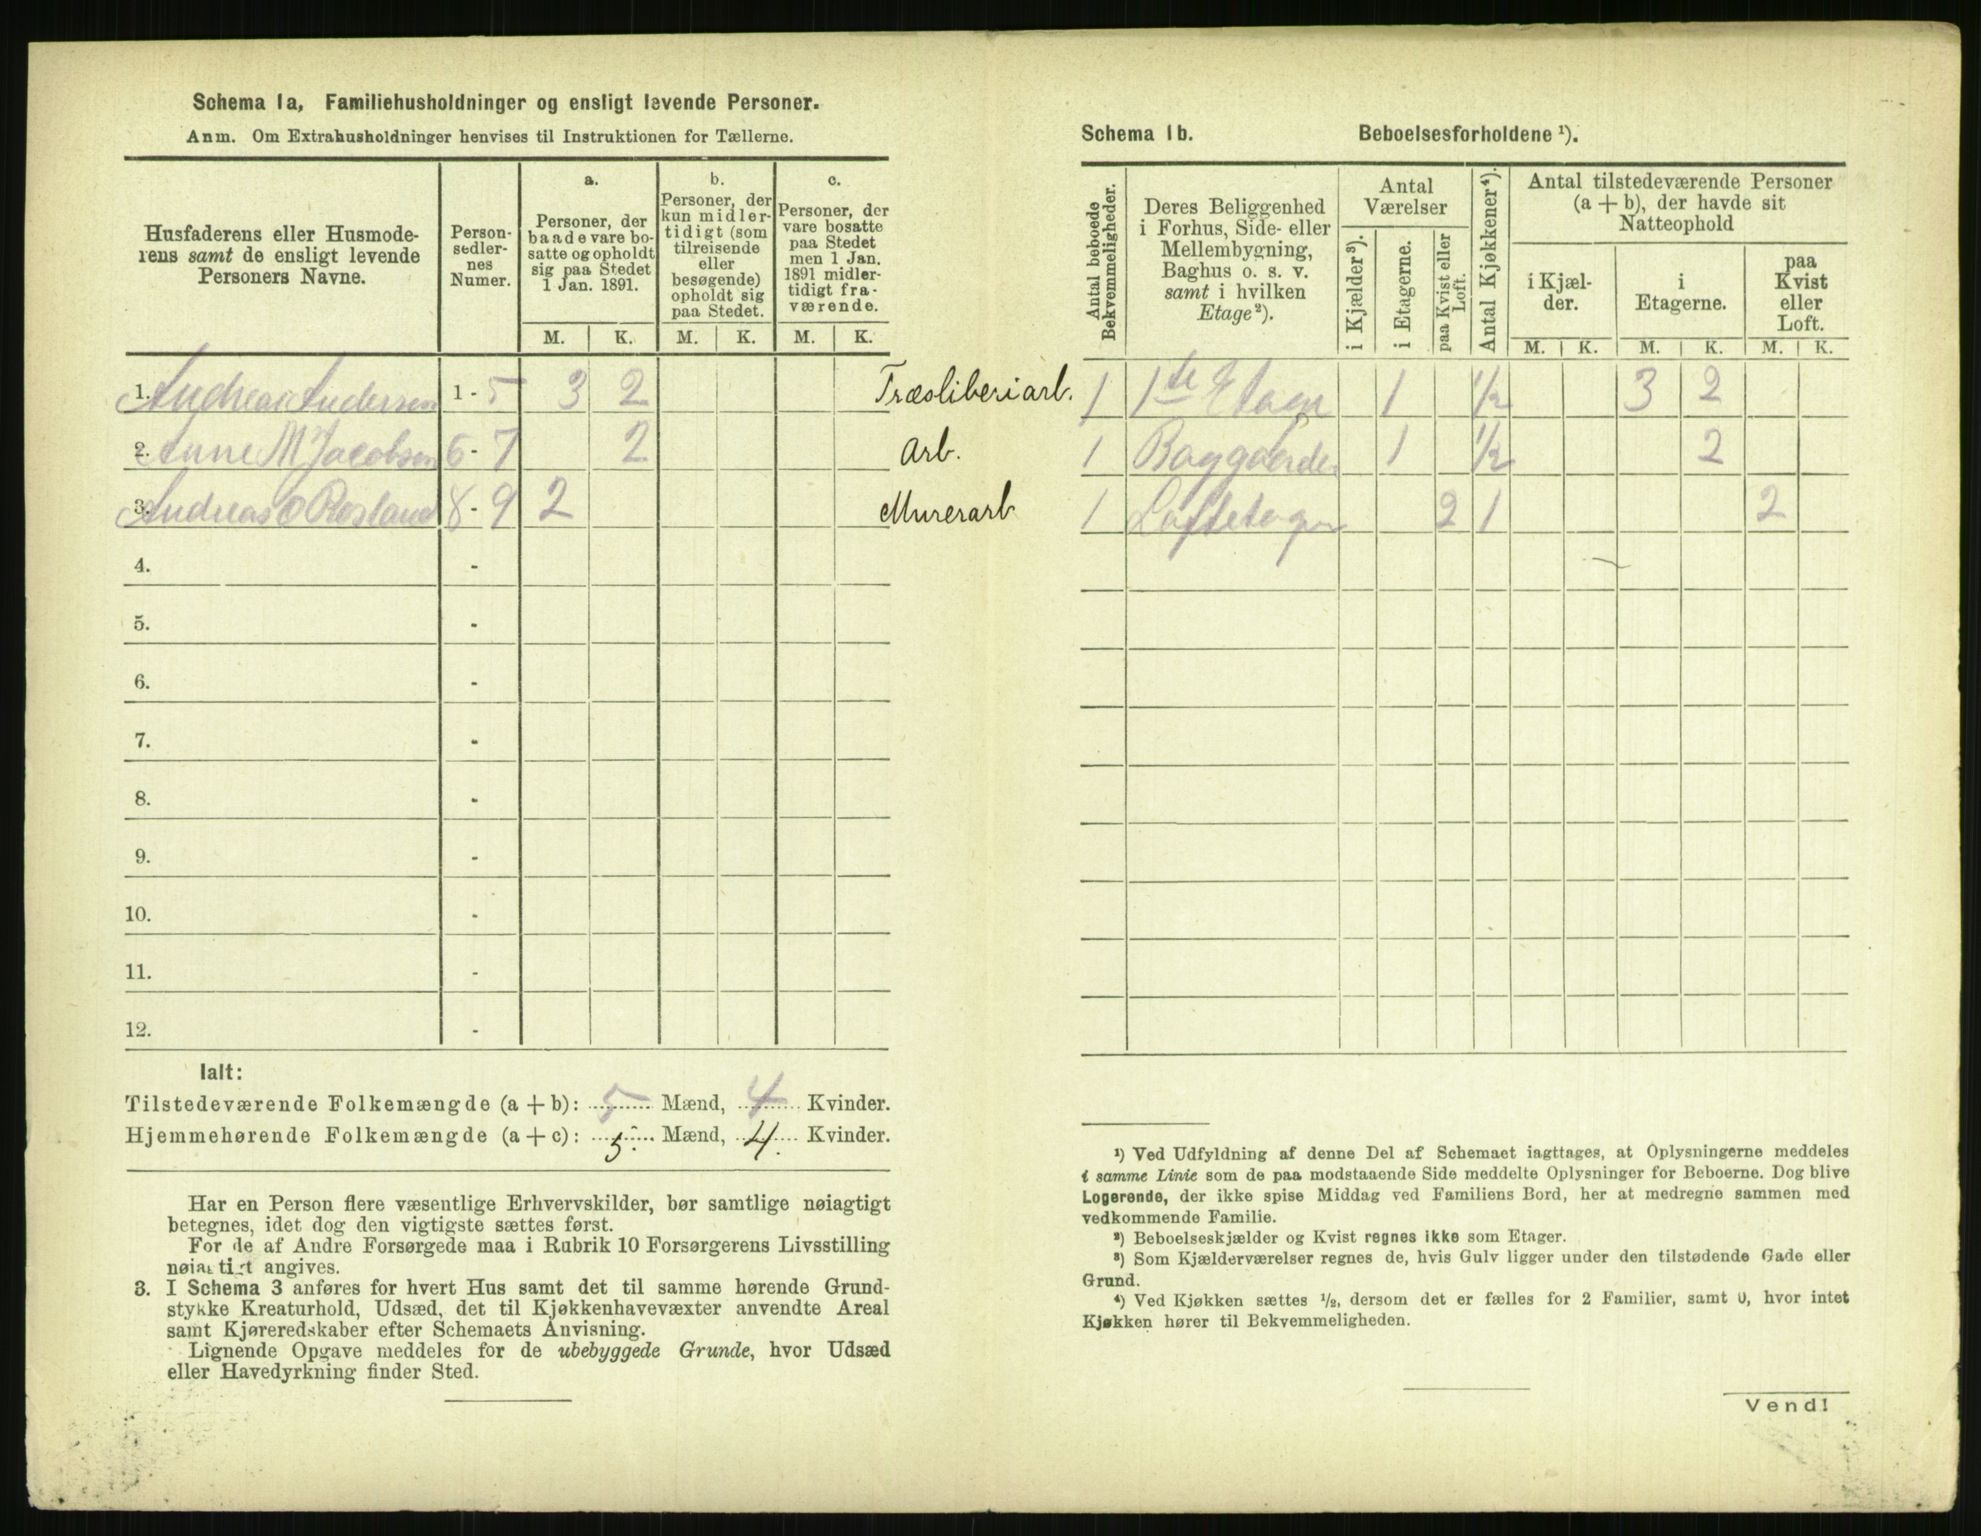 Schema 1a, Familiehusholdninger og ensligt levende Personer.
Anm. Om Extrahusholdninger henvises til Instruktionen for Tællerne.
Husfaderens eller Husmode-
rens samt de ensligt levende
Personers Navne.
Person-
sedler-
nes
Numer.
a.
Personer, der
baade vare bo-
satte og opholdt
sig paa Stedet
1 Jan. 1891.
b.
Personer, der
kun midler-
tidigt (som
tilreisende
eller
besøgende)
opholdt sig
paa Stedet.
c.
Personer, der
vare bosatte
paa Stedet
men 1 Jan.
1891 midler-
tidigt fra-
værende.
M. K. M. K. M. K.
1. Andreas Andersen 1 - 5 3 2 Træsliberiarb.
2. Anne M Jacobsen 6 - 7 2 Arb.
3. Andreas O Røsland 8 - 9 2 Murerarb
4. -
5. -
6. -
7. -
8. -
9. -
10. -
11. -
12. -
Ialt:
Tilstedeværende Folkemængde (a + b): 5 Mænd, 4 Kvinder.
Hjemmehørende Folkemængde (a + c): 5. Mænd, 4. Kvinder.
Har en Person flere væsentlige Erhvervskilder, bør samtlige nøiagtigt
betegnes, idet dog den vigtigste sættes først.
For de af Andre Forsørgede maa i Rubrik 10 Forsørgerens Livsstilling
nøiagtigt angives.
3. I Schema 3 anføres for hvert Hus samt det til samme hørende Grund-
stykke Kreaturhold, Udsæd, det til Kjøkkenhavevæxter anvendte Areal
samt Kjøreredskaber efter Schemaets Anvisning.
Lignende Opgave meddeles for de ubebyggede Grunde, hvor Udsæd
eller Havedyrkning finder Sted.
Schema 1b. Beboelsesforholdene ¹).
Antal beboede
Bekvemmeligheder.
Deres Beliggenhed
i Forhus, Side- eller
Mellembygning,
Baghus o. s. v.
samt i hvilken
Etage²).
Antal
Værelser
i Kjælder³).
i Etagerne.
paa Kvist eller
Loft.
Antal Kjøkkener⁴).
Antal tilstedeværende Personer
(a + b), der havde sit
Natteophold
i Kjæl-
der.
i
Etagerne.
paa
Kvist
eller
Loft.
M. K. M. K. M. K.
1 1ste Etage 1 1/2 3 2
1 Baggaarden 1 1/2 2
1 Loftetagen 2 1 2
¹) Ved Udfyldning af denne Del af Schemaet iagttages, at Oplysningerne meddeles
i samme Linie som de paa modstaaende Side meddelte Oplysninger for Beboerne. Dog blive
Logerende, der ikke spise Middag ved Familiens Bord, her at medregne sammen med
vedkommende Familie.
²) Beboelseskjælder og Kvist regnes ikke som Etager.
³) Som Kjælderværelser regnes de, hvis Gulv ligger under den tilstødende Gade eller
Grund.
⁴) Ved Kjøkken sættes ¹/₂, dersom det er fælles for 2 Familier, samt 0, hvor intet
Kjøkken hører til Bekvemmeligheden.
Vend!